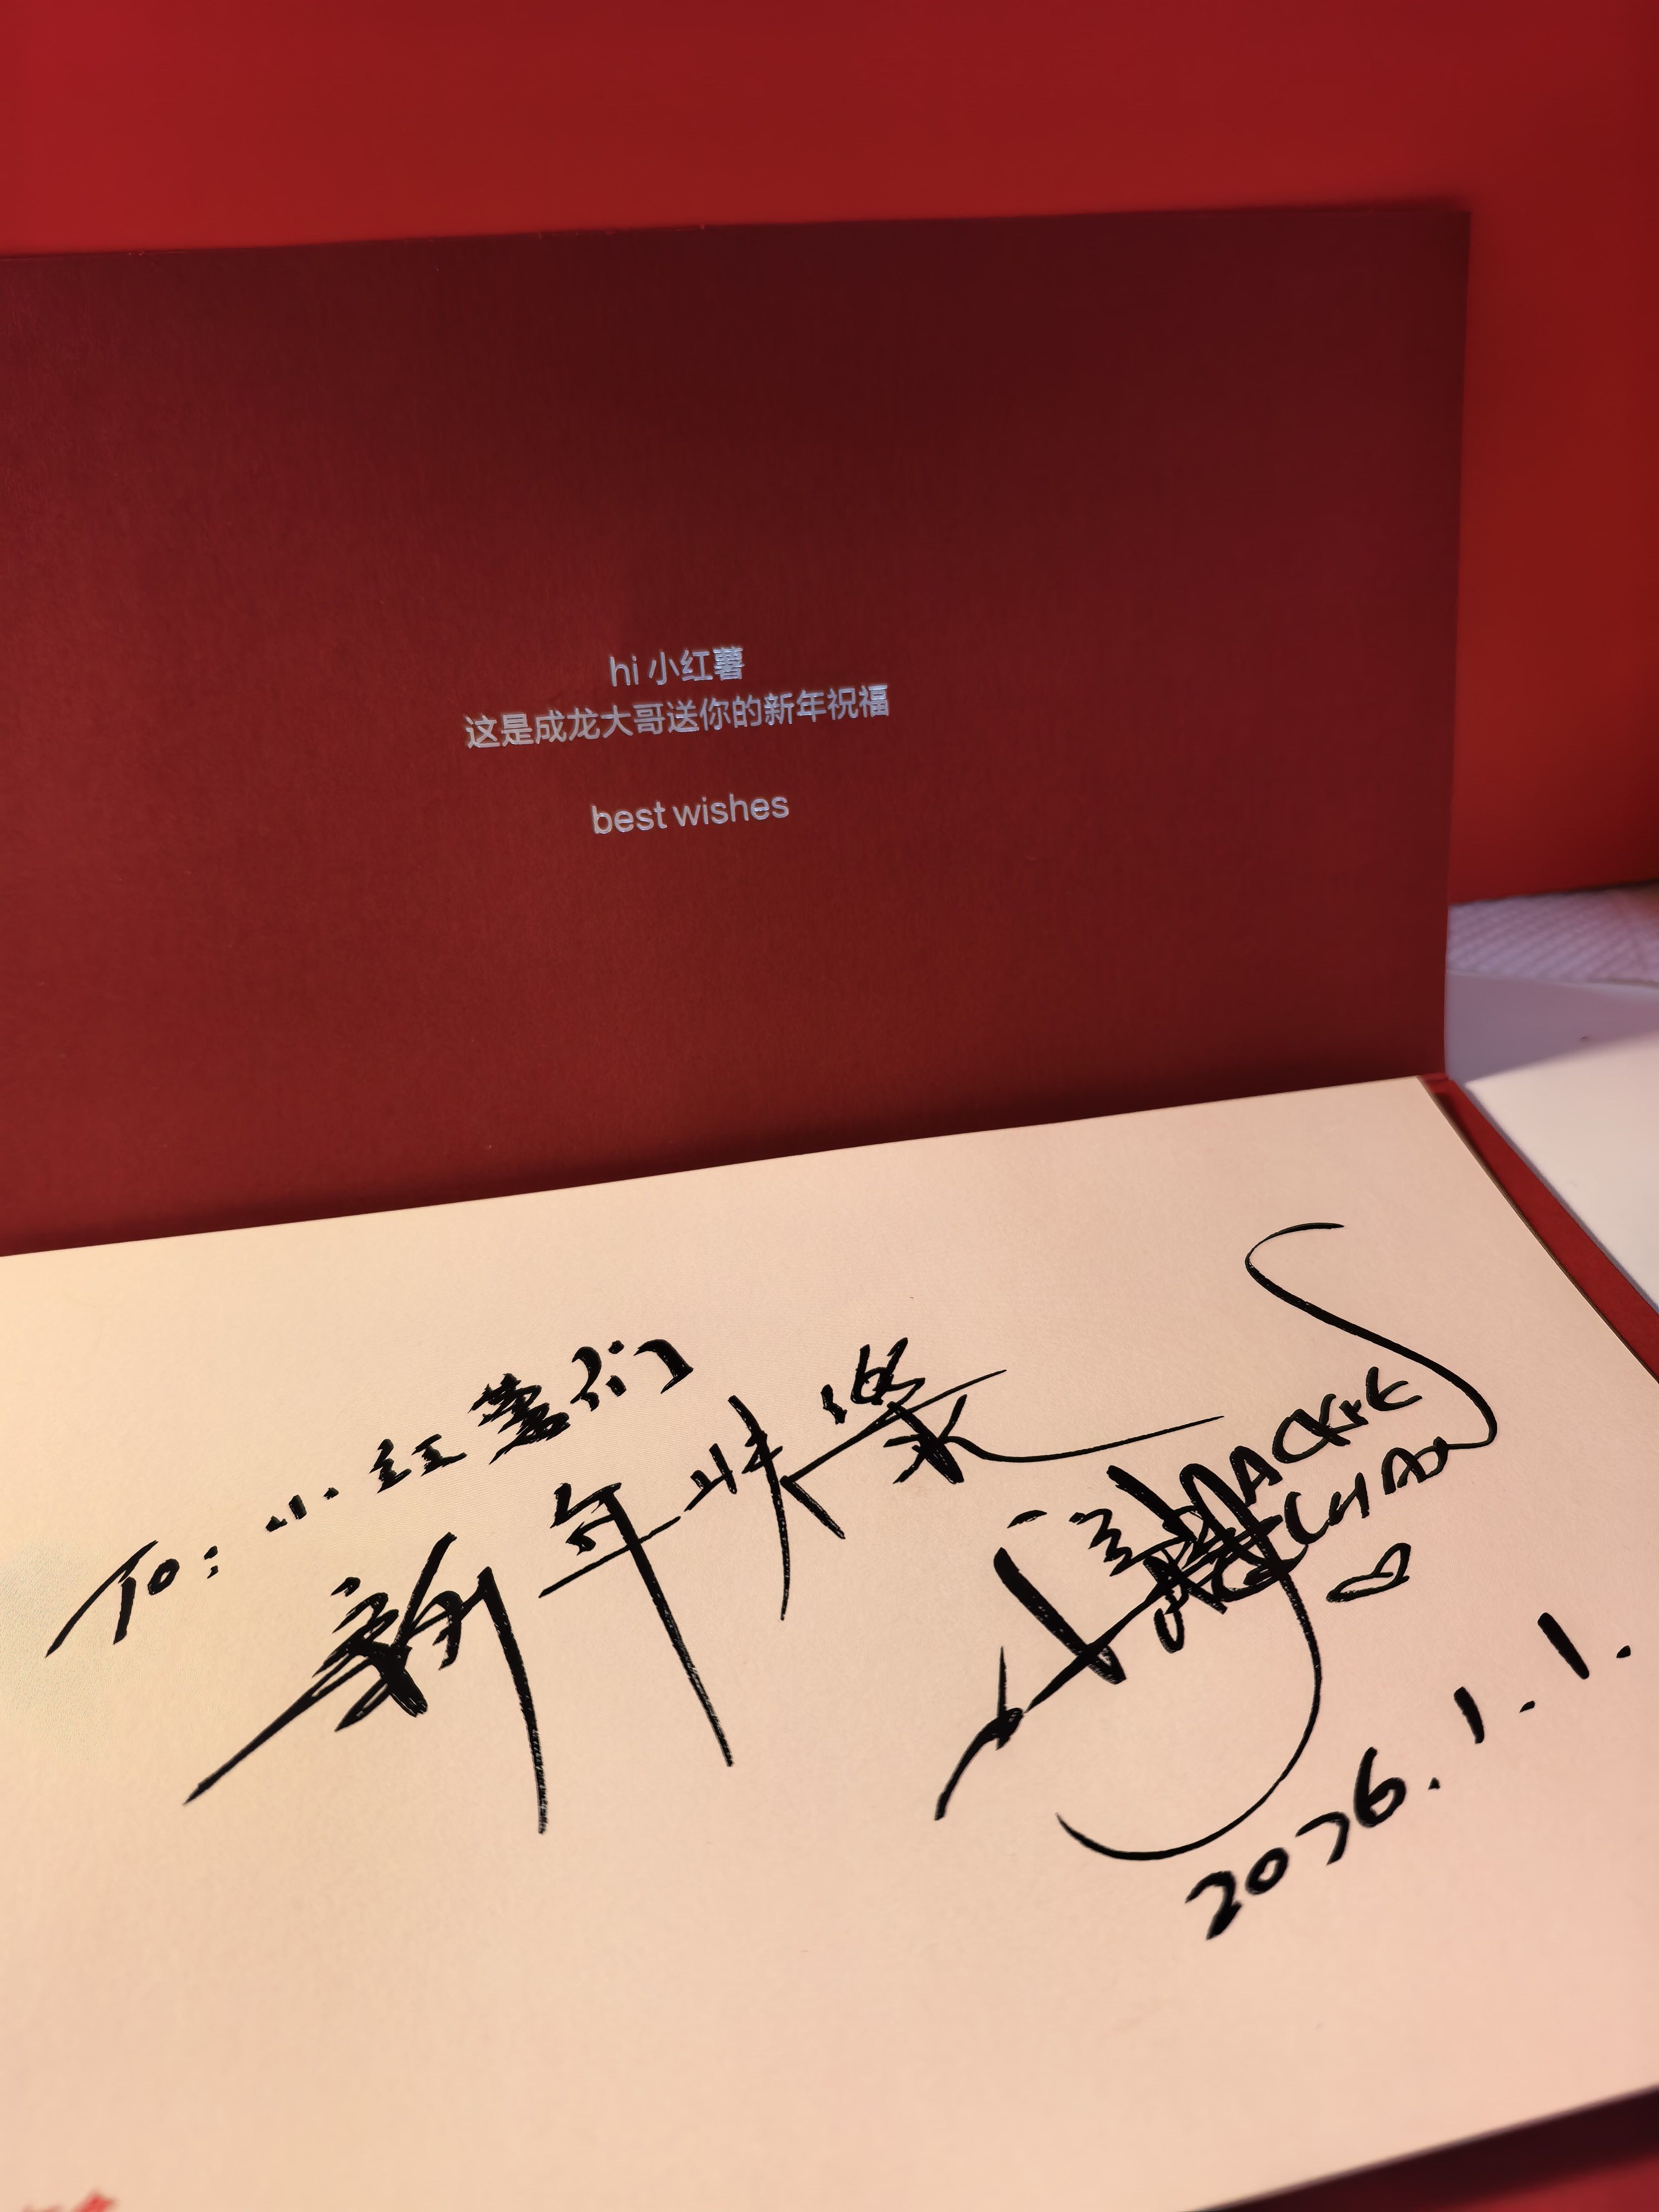 hi 小红薯
这是成龙大哥送你的新年祝福
best wishes
To: 小红薯们
新年快樂
JACKIE
CHAN
2026.1.1.